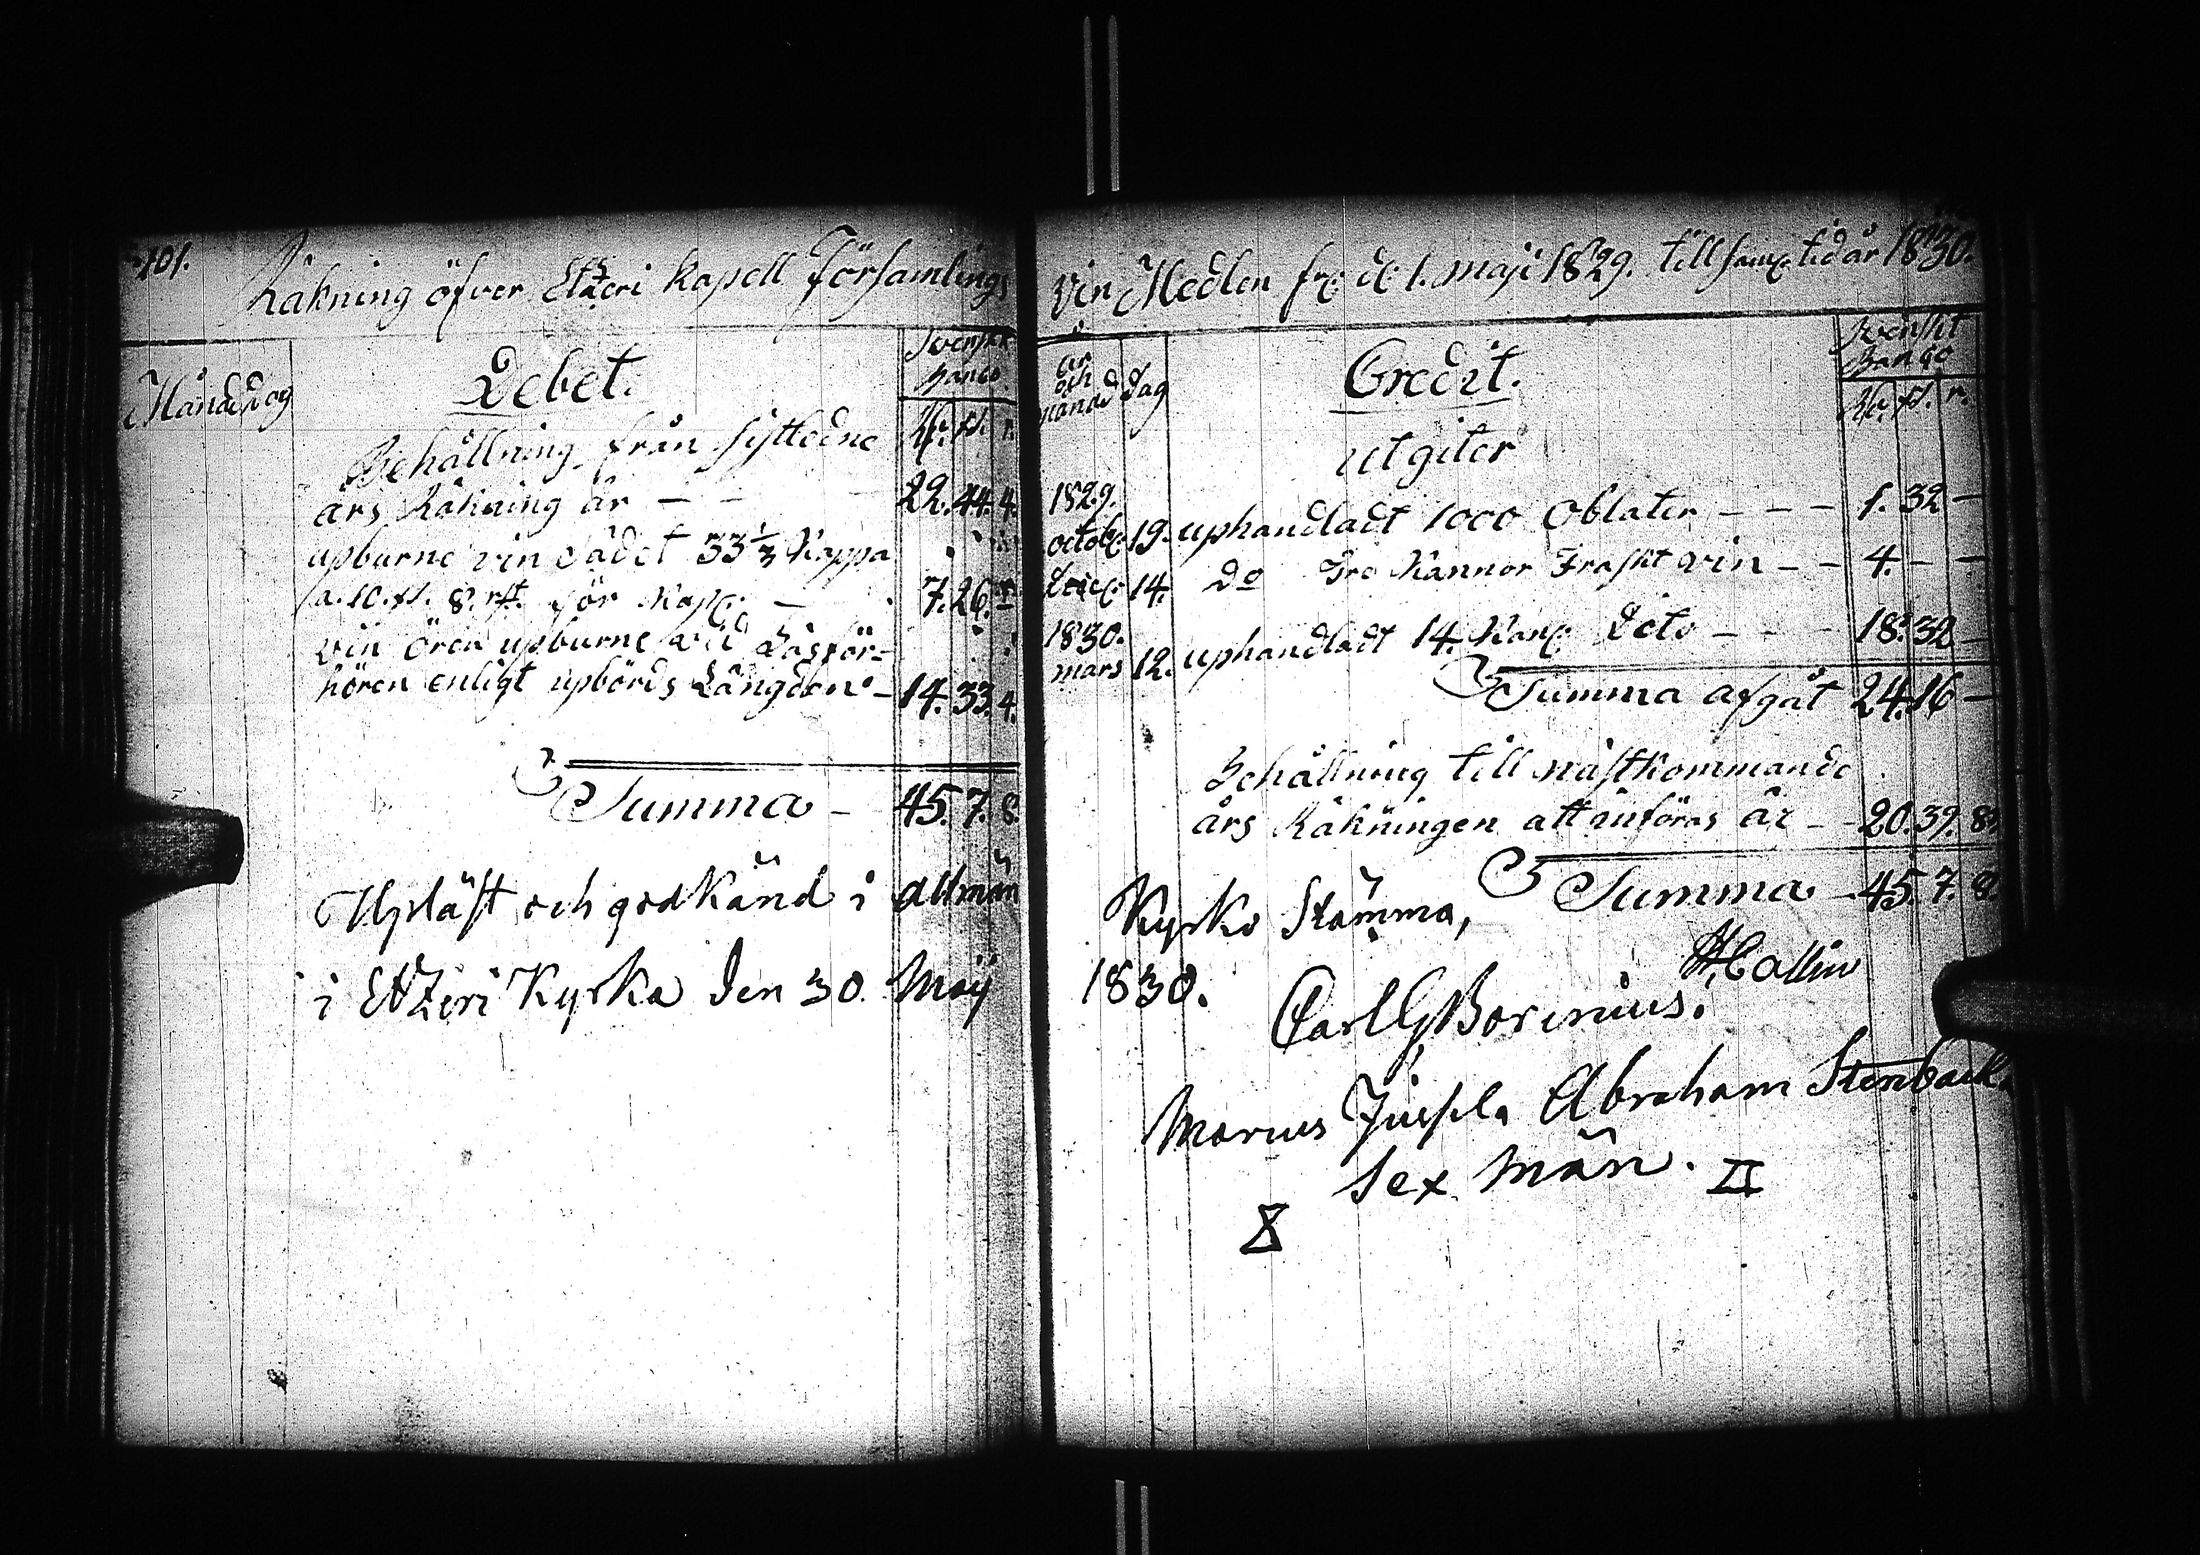 101.
Räkning öfver Etzeri Kapell Församlings
Månad Dag
Debet.
Svenskt
Banco.
Rdr. sk. r.
Behållning från sistledne
års Räkning är — — 22. 44. 4.
upburne vin sädet 33 1/3 Kappa
a. 10. sk. 8. rst. för Kapp. — 7. 26. —
vin ören upburne vid Läsför-
hören enligt upbörds Längden — 14. 33. 4.
Summa — 45. 7. 8.
Upläst och godkänd i allmän
i Etzeri Kyrka den 30. Maij
vin Medlen fr: d: 1. maji 1829. till sam: tid år 1830.
år
och
månad
Dag
Credit.
Svenskt
Banco
Rdr. sk. r.
utgiter
1829.
octob: 19. uphandladt 1000 Oblater — — — 1. 32 —
14. Do Kannor Fraskt vin — — 4. — —
1830.
mars 12. uphandladt 14. Kan: Dito — — — 18. 32 —
Summa afgåt 24. 16 —
Behållning till nästkommande
års Räkningen att införas är — — 20. 39. 8.
Summa — 45. 7. 8.
Kyrko Stämma,
1830.
Carl G Borenius.
Marcus Abraham Stenbacka
Sex män. II
8